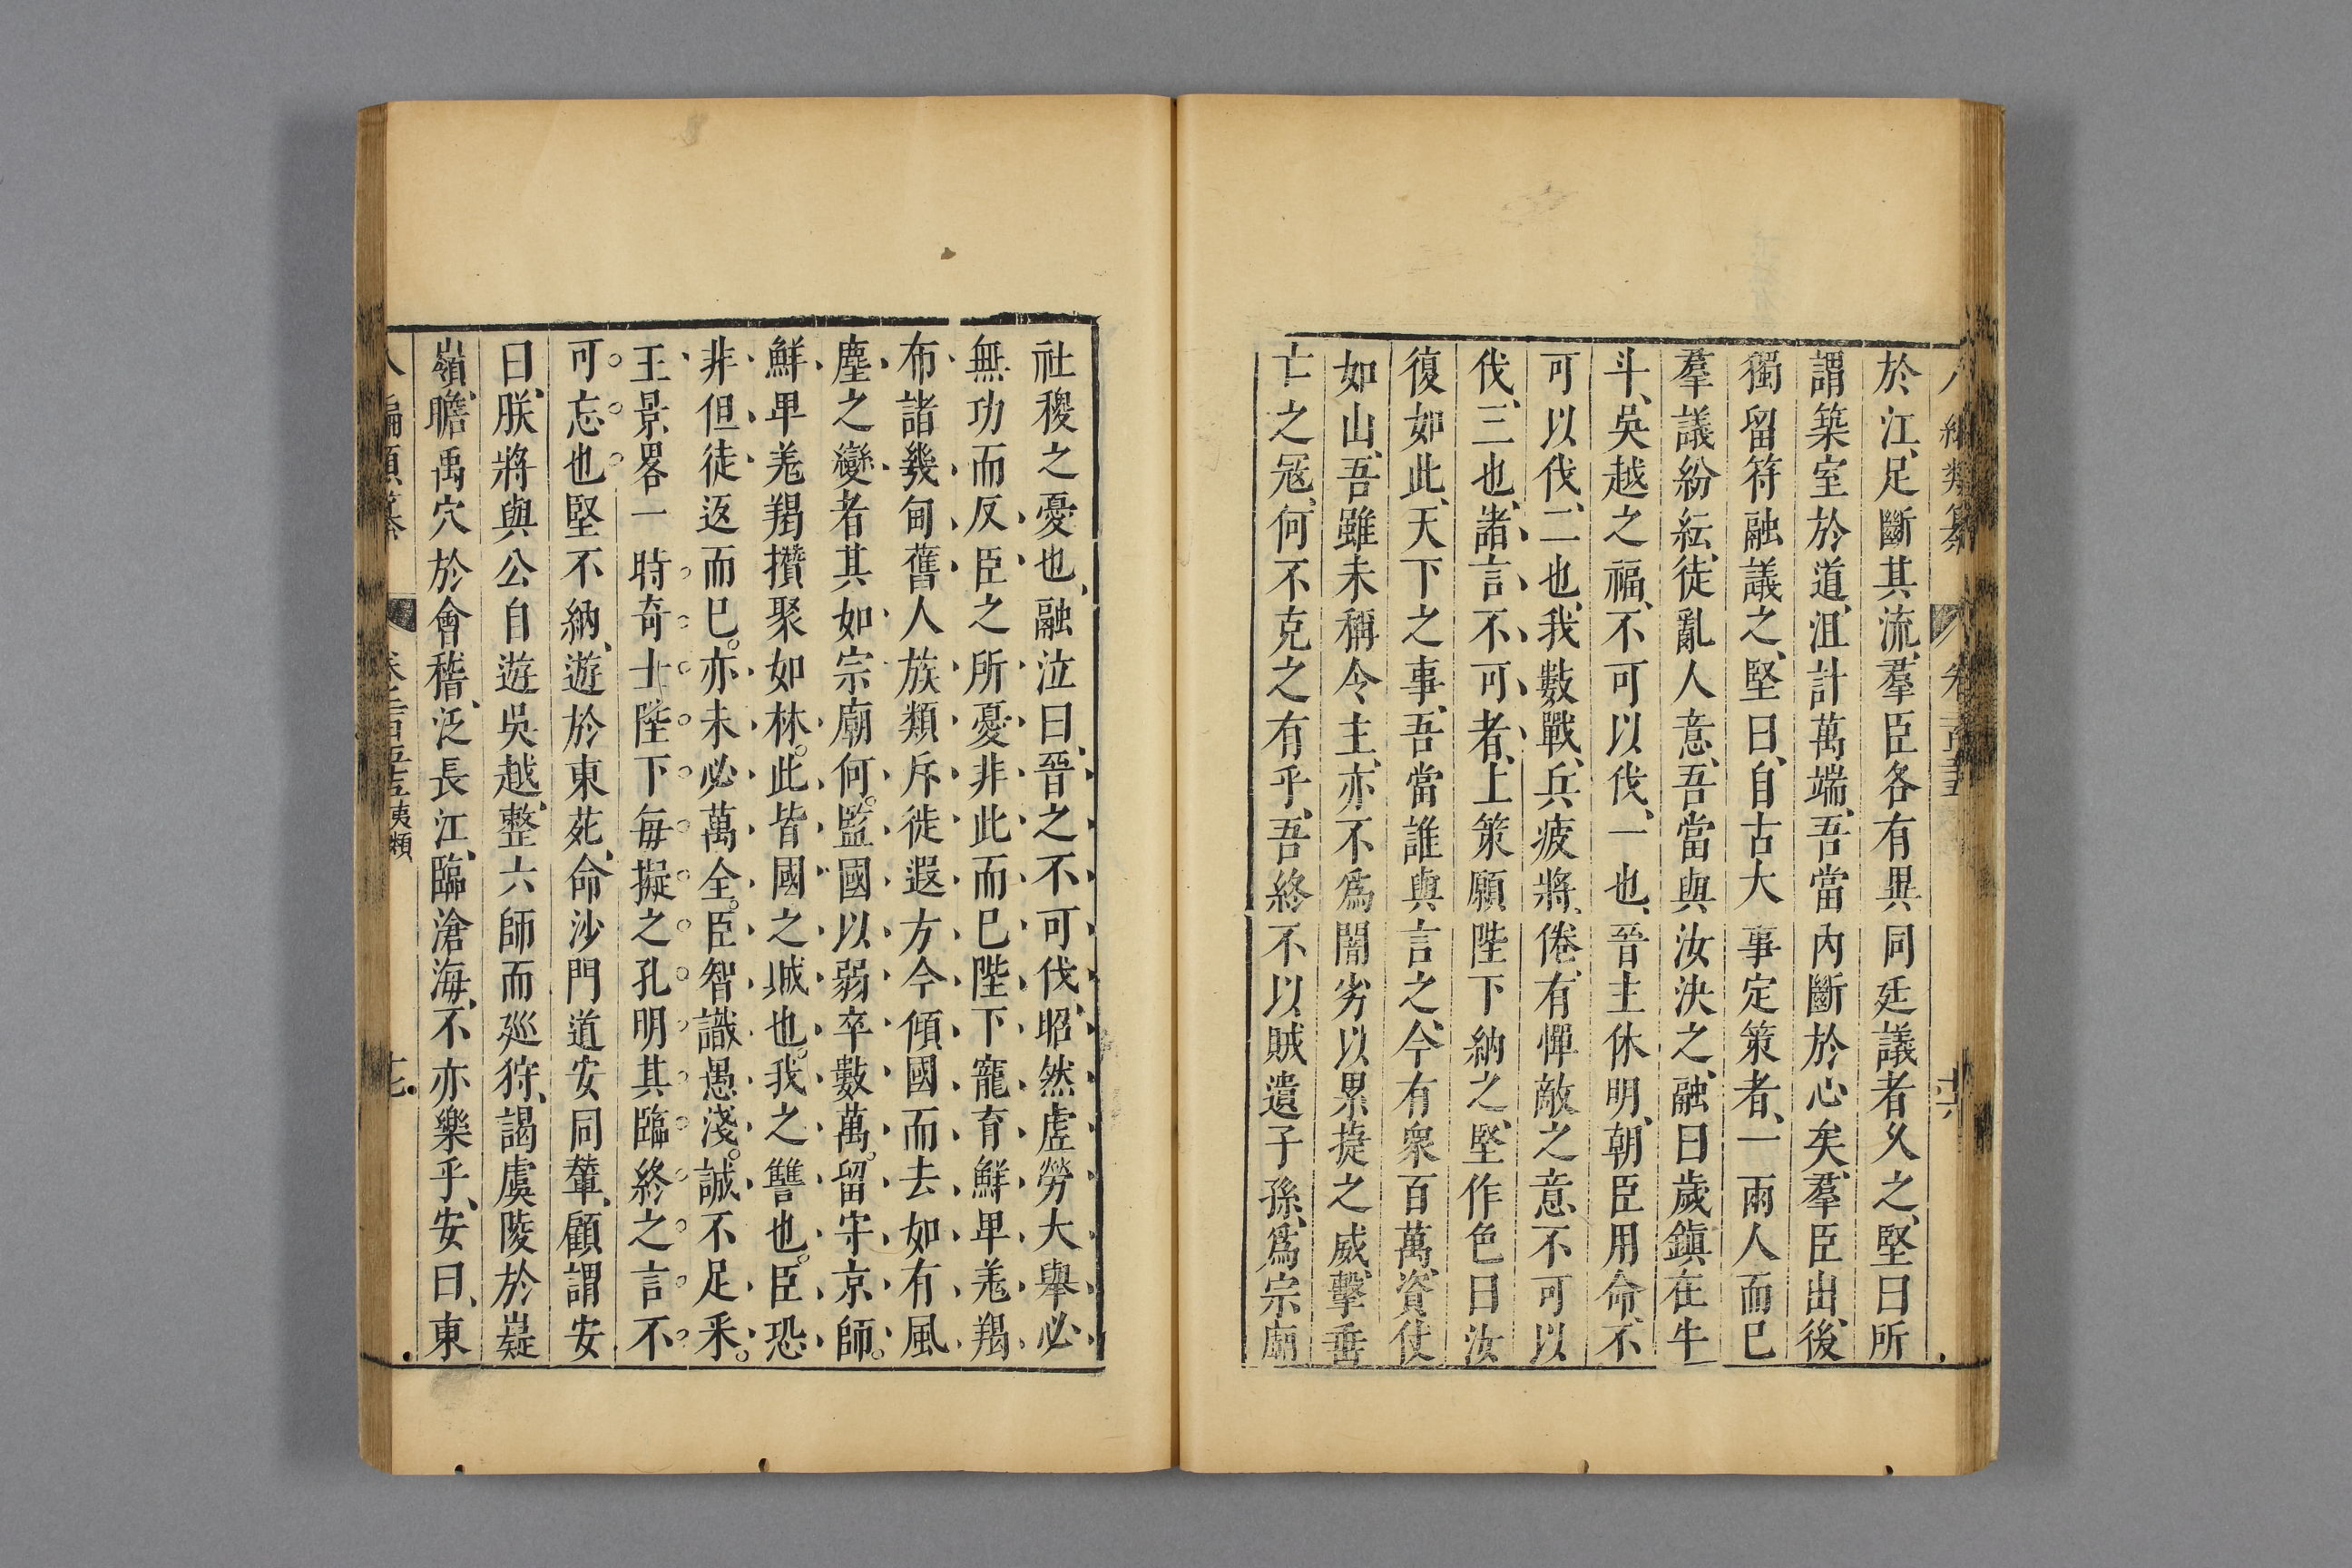 於江、足斷其流、羣臣各有異同廷議者久之、堅曰所
謂築室於道、沮計萬端、吾當內斷於心矣、羣臣出、後
獨留符融議之、堅曰、自古大事定策者、一兩人而已
羣議紛紜、徒亂人意、吾當與汝決之、融曰歲鎮在牛
斗、吳越之福、不可以伐、一也、晉主休明、朝臣用命、不
可以伐、二也、我數戰、兵疲將倦、有憚敵之意、不可以
伐、三也、諸言不可者、上策願陛下納之、堅作色曰汝
復如此、天下之事、吾當誰與言之、今有衆百萬、資仗
如山、吾雖未稱令主、亦不爲闇劣以累捷之威、擊垂
亡之寇、何不克之有乎、吾終不以賊遺子孫、爲宗廟
社稷之憂也、融泣曰、晉之不可伐、昭然虛勞大舉必
無功而反臣之所憂非此而已陛下寵育鮮卑羌羯
布諸畿甸舊人族類斥徙遐方今傾國而去如有風
塵之變者其如宗廟何。監國以弱卒數萬。留守京師。
鮮卑羌羯攢聚如林。此皆國之賊也。我之讐也。臣恐
非但徒返而已。亦未必萬全。臣智識愚淺。誠不足采。
王景畧一時奇士陛下每擬之孔明其臨終之言不
可忘也堅不納、遊於東苑、命沙門道安同輦、顧謂安
曰、朕將與公自遊吳越、整六師而廵狩、謁虞陵於嶷
嶺、瞻禹穴於會稽、泛長江、臨滄海、不亦樂乎、安曰、東